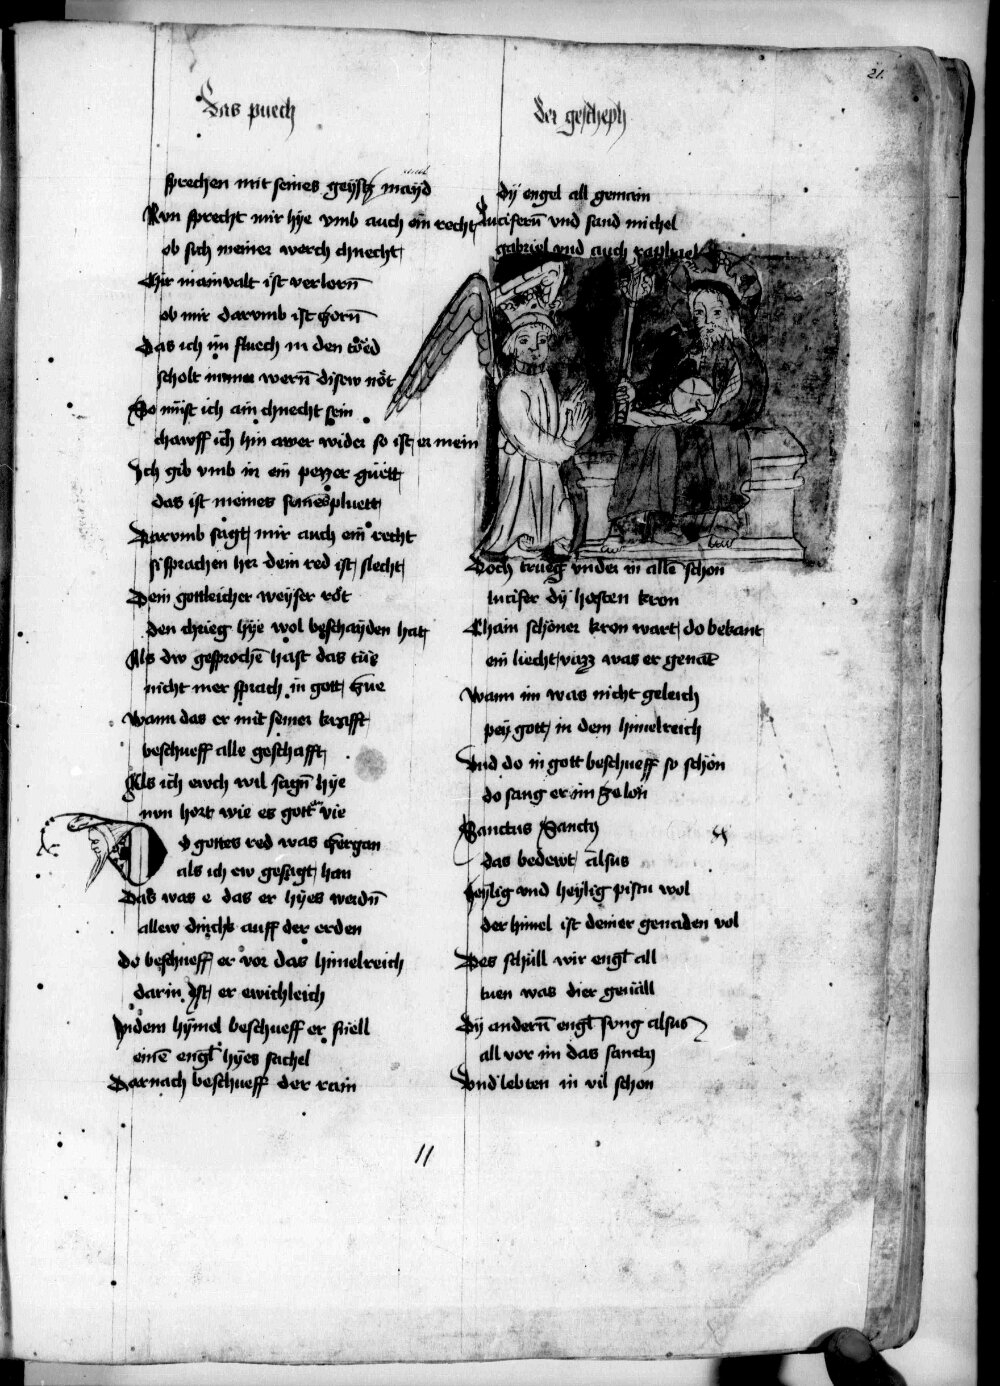 21.
Das puech
der gescheph
sprechen mit seines geystz mayd
Nvn sprecht mir hye vmb auch ein recht
ob sich meiner werch chnecht
Chir mainvalt ist verlorn̄
ob mir darvmb ist zorn̄
Das ich im fluech in den töed
scholt wern̄ disew nöt
So müst ich ain chnecht sein
chawff ich hin awer wider so ist er mein
Ich gib vmb in ein pezzer güett
das ist meines sones pluett
Darvmb sagt mir auch ein recht
si sprachen her dein red ist slecht
Dein gottleicher weyser röt
den chrieg hye wol beschayden hat
Als dw gesprochē hast das tüe
nicht mer sprach in gott zue
Wann das er mit seiner krafft
beschueff alle geschafft
Als ich ewch wil sagn̄ hye
nvn hort wie es gott an vie
Do gottes red was ergan
als ich ew gesagt han
Das was e das er hyes werdn̄
allew dinchk auff der erden
do beschueff er vor das himelreich
darin Ist er ewichleich
In dem hymel beschueff er snell
einē engl hyes sachel
Darnach beschueff der rain
dÿ engel all gemain
Lucifern̄ vnd sand michel
gabriel vnd auch raphael
Doch trueg vnder in allē schon
lucifer dÿ hosten kron
Chain schöner kron wart do bekant
ein liecht vazz was er genāt
Wann im was nicht geleich
pey gott in dem himelreich
Vnd do in gott beschueff so schön
do sang er im ze lon
Sanctus Sanctus
das bedewt alsus
Heylig vnd heylig pistu wol
der himel ist deiner genaden vol
Des schüll wir engl all
tuen was dier geuäll
Dÿ andern̄ engl sung alsus
all vor im das sanctus
Vnd lebten in vil schon
11